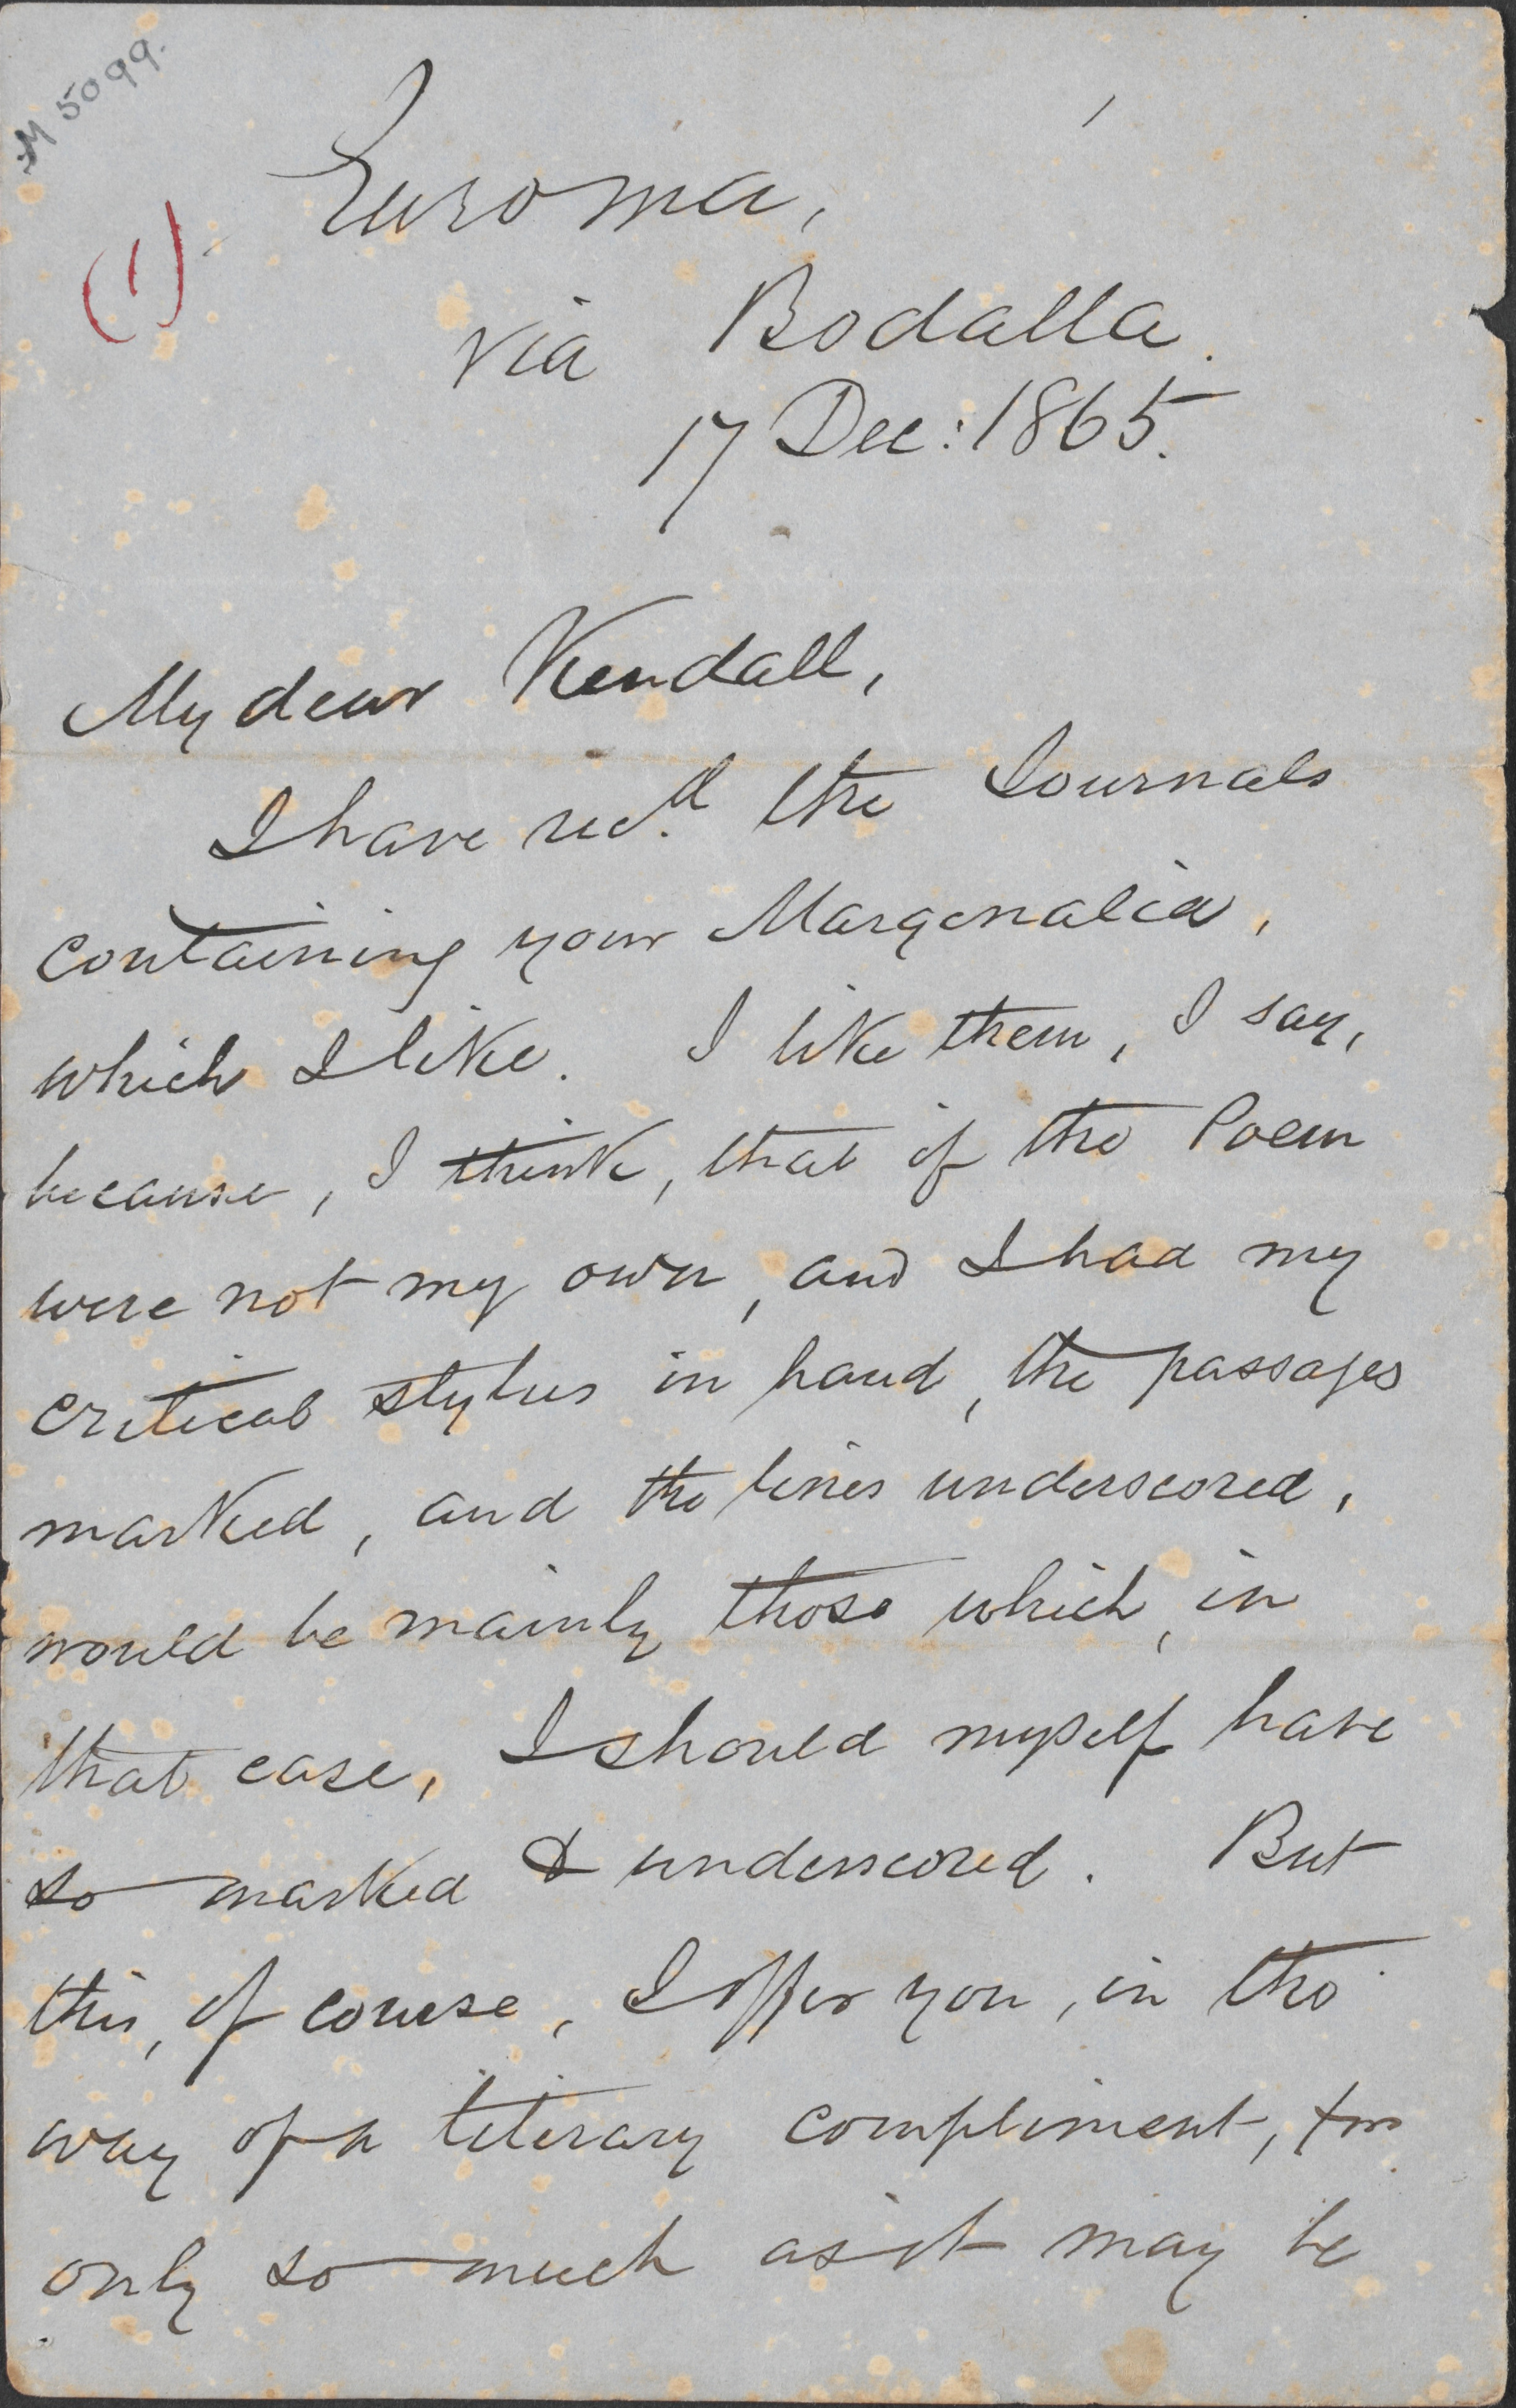 M 5099.
(1)
Euroma,
via Bodalla.
17 Dec: 1865.
My dear Kendall,
I have recd. the Journals
containing your Margenalia,
which I like. I like them, I say,
because, I think, that if the Poem
were not my own, and I had my
critical stylus in hand, the passages
marked, and the lines underscored,
would be mainly those which, in
that case, I should myself have
so marked & underscored. But
this, of course, I offer you, in the
way of a literary compliment, for
only so much as it may be